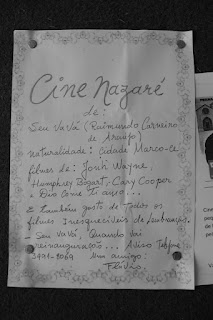 Cine Nazaré
de:
Seu Vavá (Raimundo Carneiro
de Araujo)
naturalidade: Cidade Marco-ce
filmes de: John Wayne,
Humphrey Bogart, Cary Cooper
e Dio come Ti amo...
E também gosto de Todos os
filmes Inesquecíveis de
Seu Vavá, Quando vai
reinauguração... Aviso
3491-8069 Um amigo: